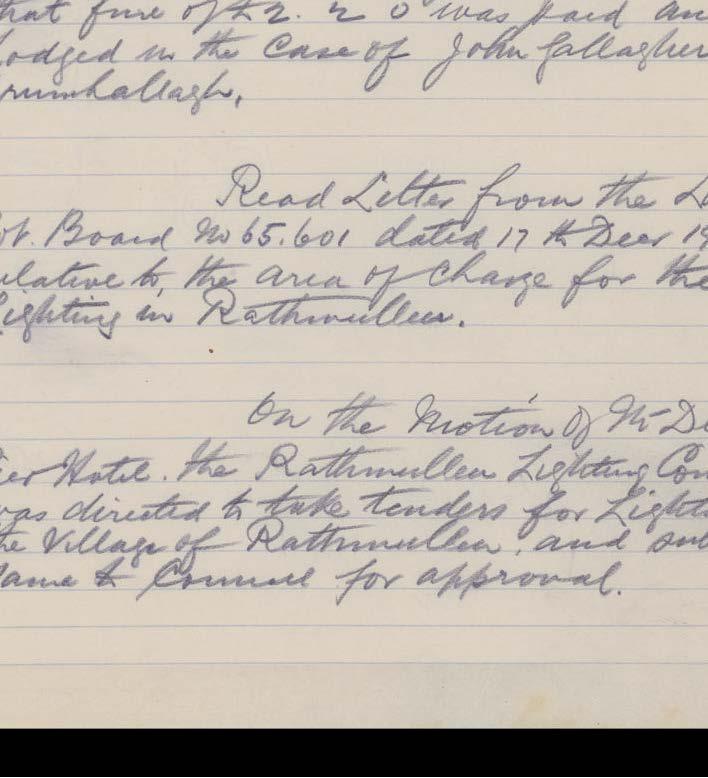 that fine of £2. 2 0 was paid an
lodged in the Case of John Gallagher
rumhallagh.
Read Letter from the L
ov. Board No 65.601 dated 17th Decr 19
relative to the area of Charge for the
Lighting in Rathmullen.
On the Motion of Mr De
ier Hotel. the Rathmullen Lighting Com
was directed to take tenders for Light
the Village of Rathmullen, and sub
Same to Council for approval.